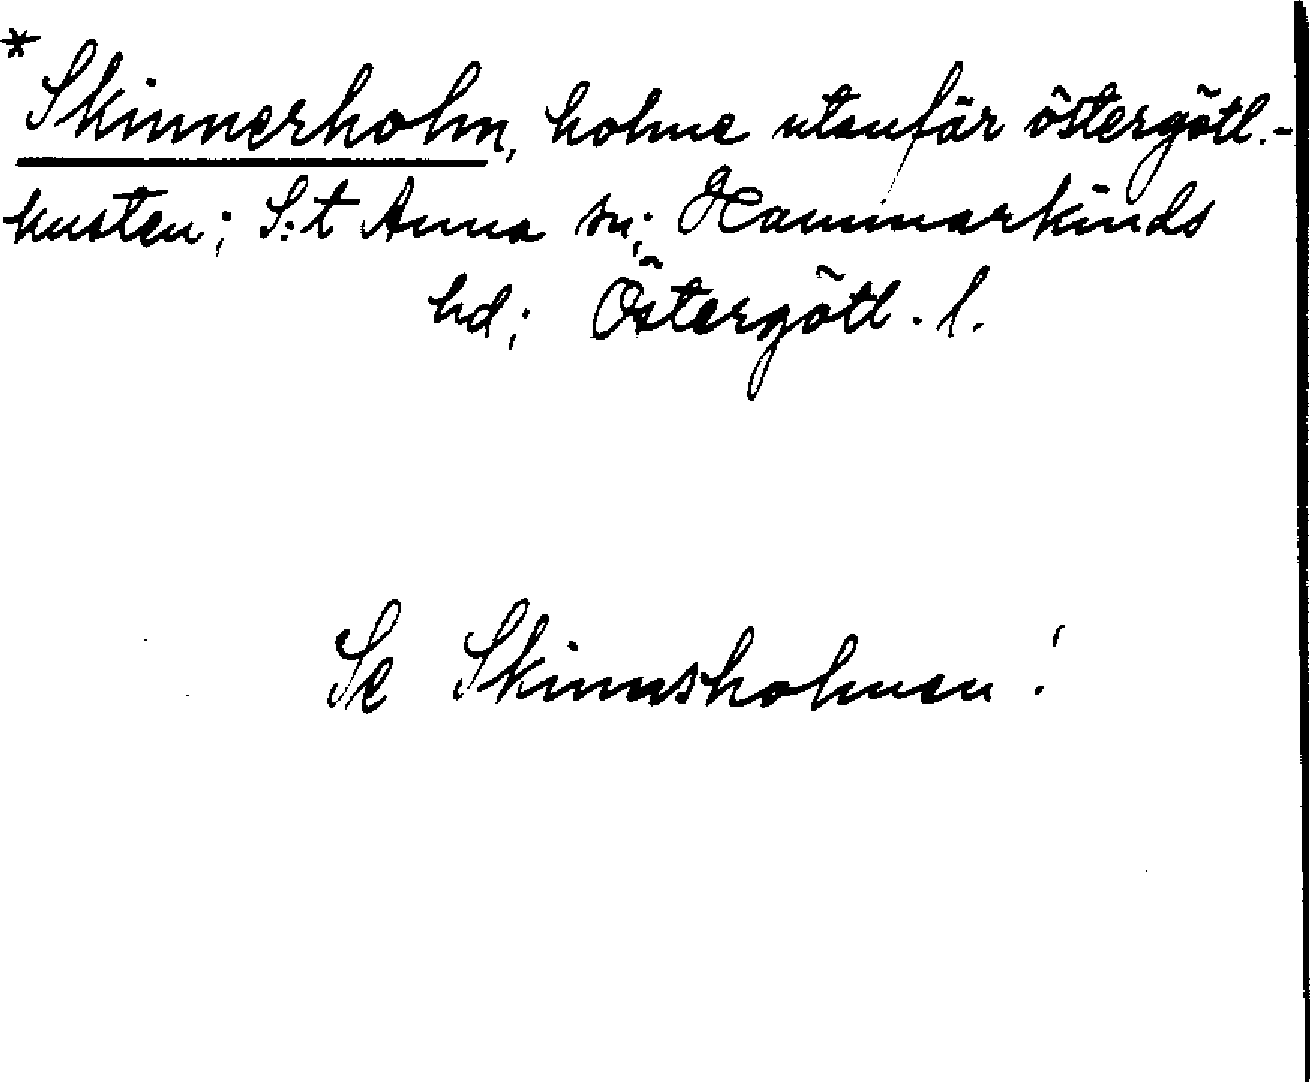 * Skinnerholm, holme utanför östergötl.-
kusten; S:t Anna sn; Hammarkinds
hd; Östergötl. l.
Se Skinnsholmen!